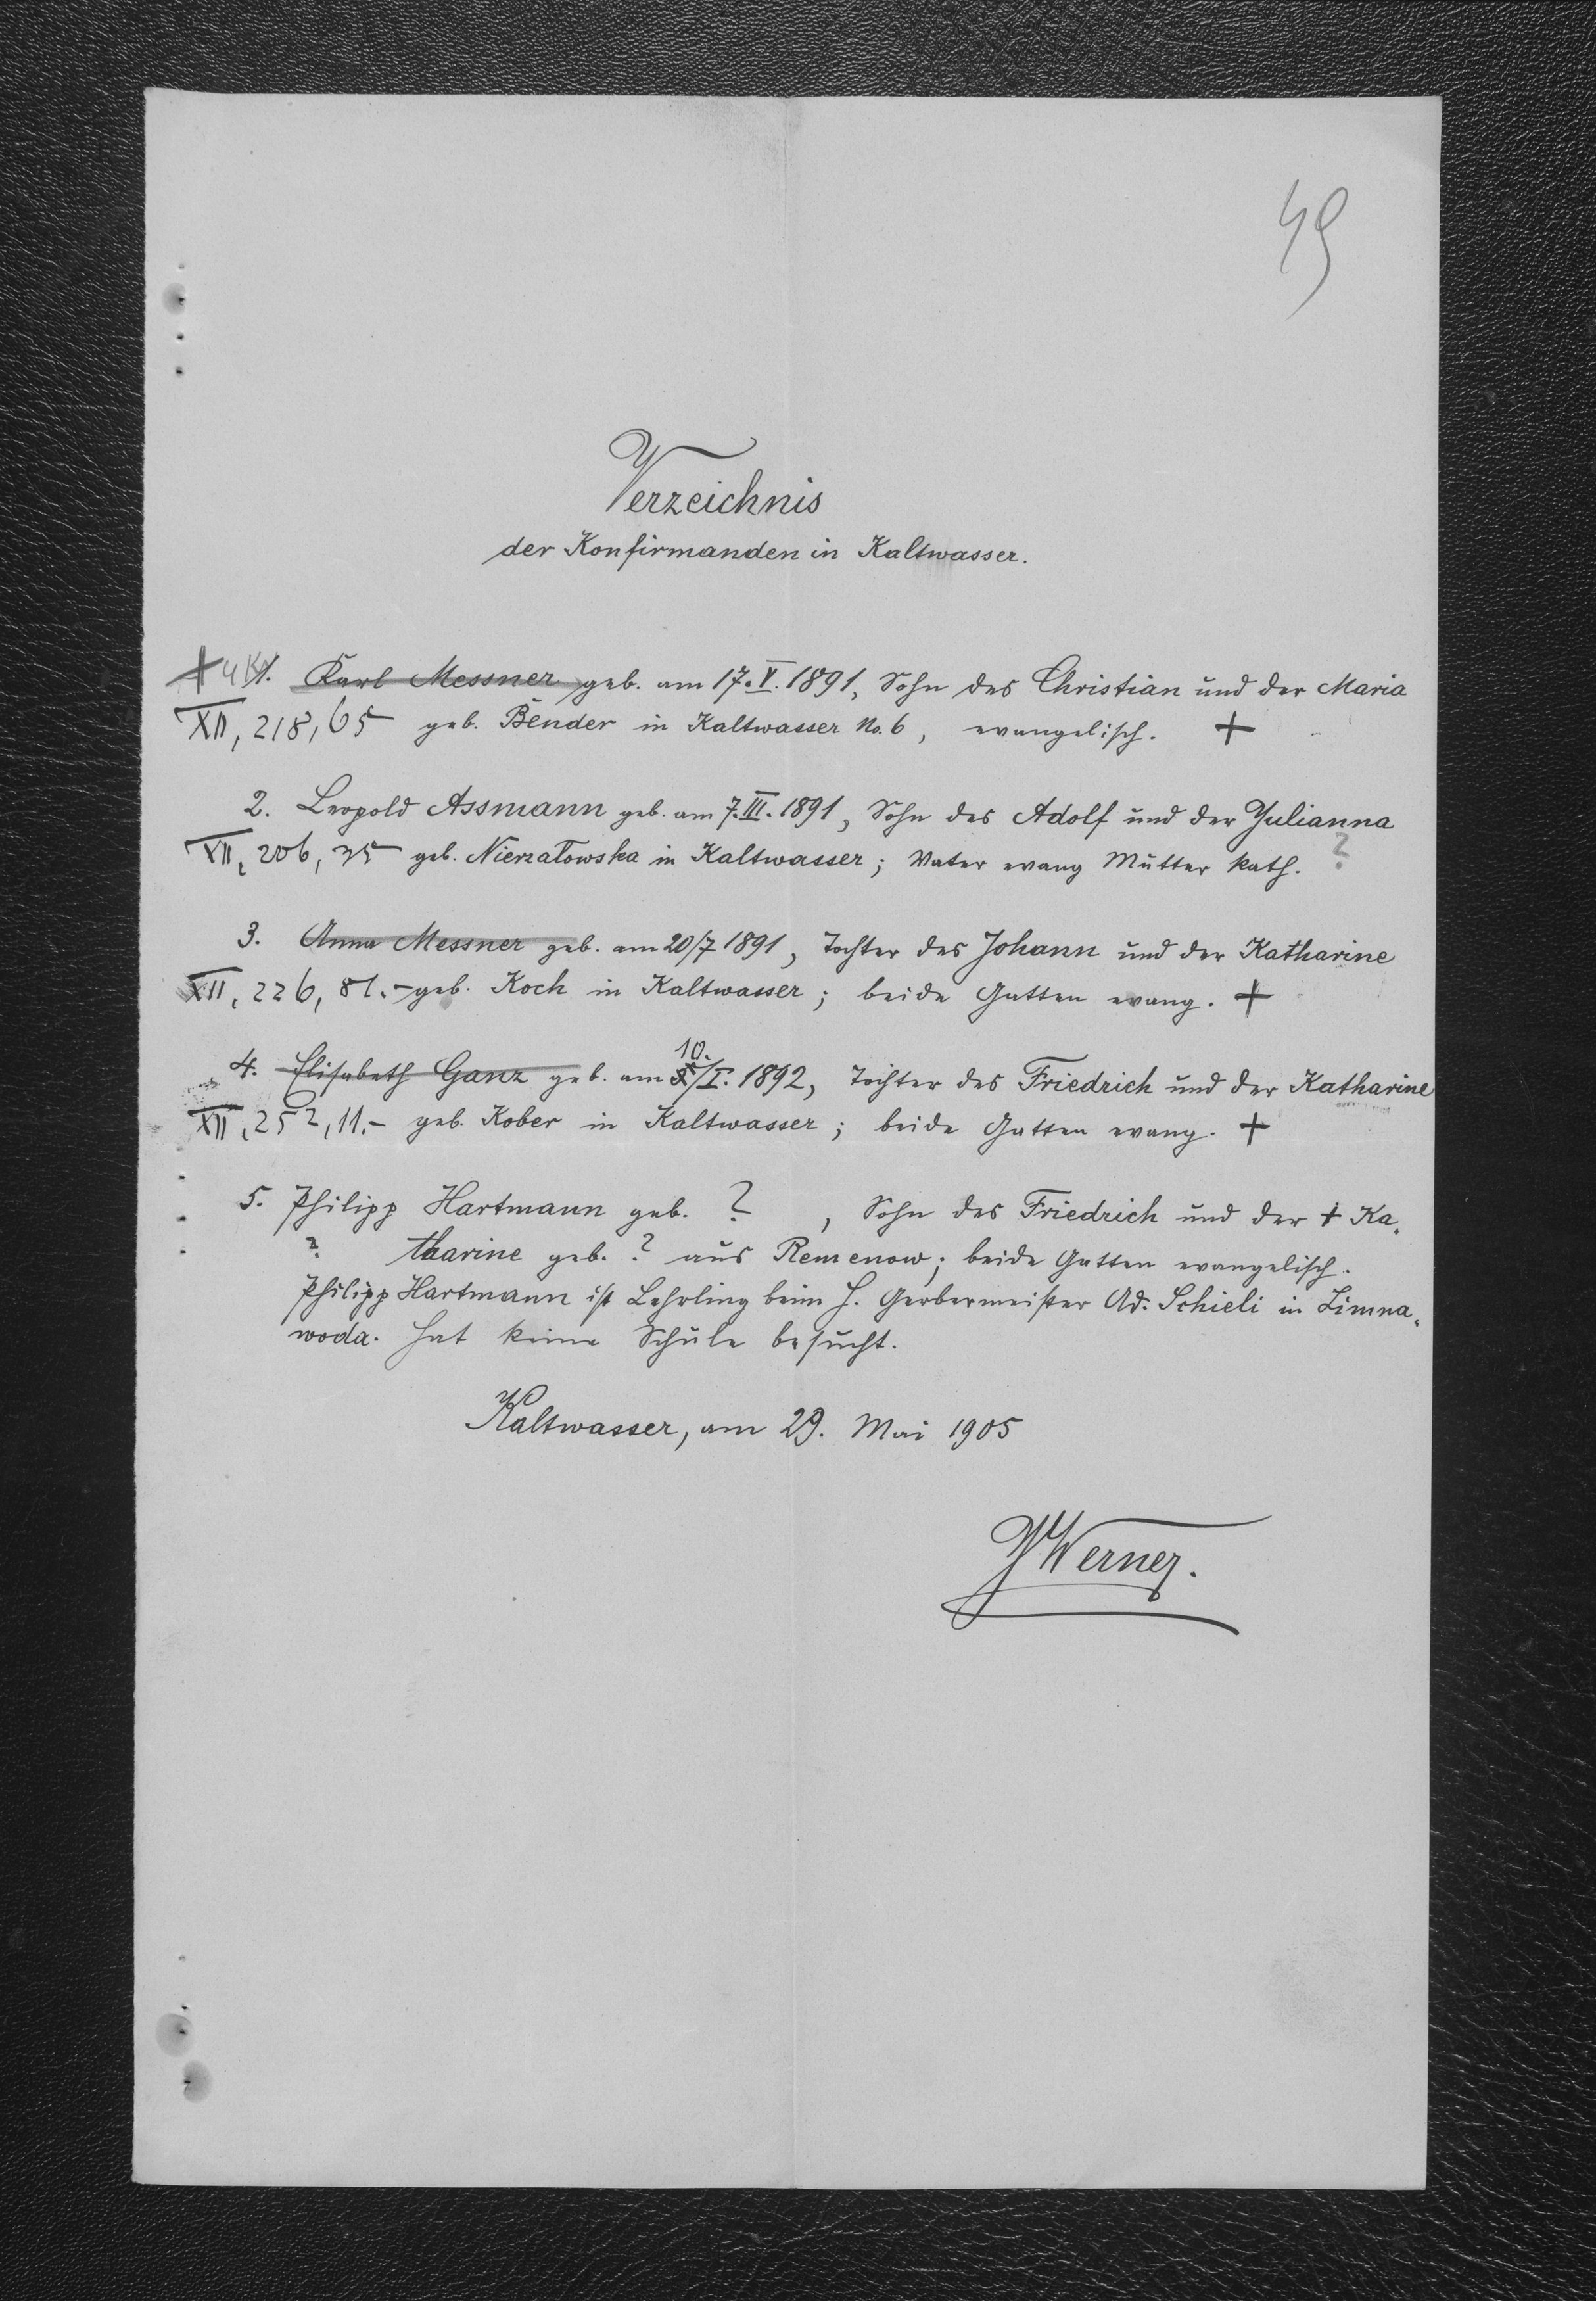 49
Verzeichnis
der Konfirmanden in Kaltwasser.
1. Karl Messner geb. am 17.V.1891, Sohn des Christian und der Maria
XII, 218, 65 geb. Bender in Kaltwasser No. 6, evangelisch. +
2. Leopold Assmann geb. am 7.III.1891, Sohn des Adolf und der Julianna
XII, 206, 35 geb. Nierzałowska in Kaltwasser; Vater evang Mutter kath. ?
3. Anna Messner geb. am 20/7 1891, Tochter des Johann und der Katharine
XII, 226, 81.- geb. Koch in Kaltwasser; beide Gatten evang. +
10.
4. Elisabeth Ganz geb. am /I. 1892, Tochter des Friedrich und der Katharine
XII, 252, 11.- geb. Kober in Kaltwasser; beide Gatten evang. +
5. Philipp Hartmann geb. ? , Sohn des Friedrich und der + Ka-
? tharine geb. ? aus Remenow; beide Gatten evangelisch.
Philipp Hartmann ist Lehrling beim H. Gerbermeister Ad. Schieli in Zimna-
woda. Hat keine Schule besucht.
Kaltwasser, am 29. Mai 1905
Werner.